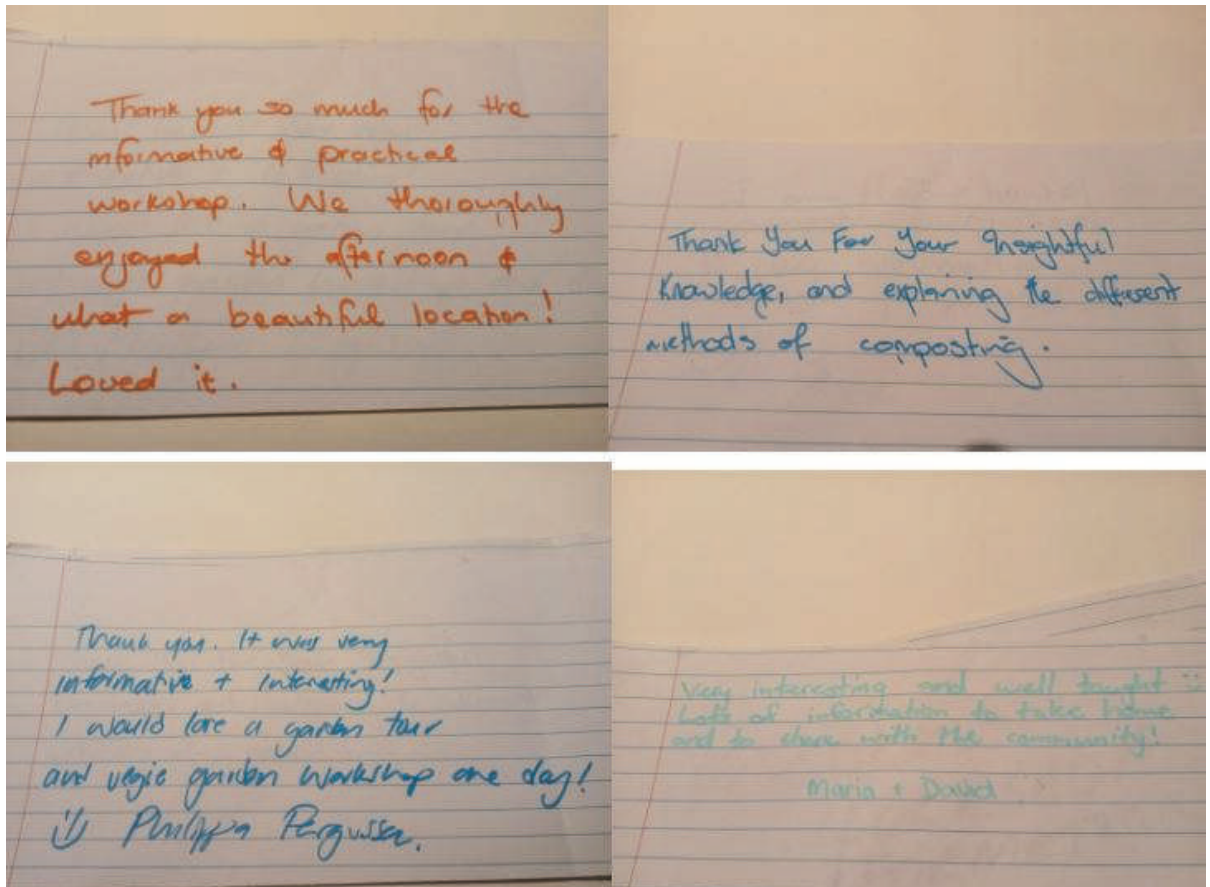 Thank you so much for the
informative & practical
workshop. We thoroughly
enjoyed the afternoon &
what a beautiful location!
Loved it.
Thank You For Your Insightful
Knowledge, and explaining the different
methods of composting.
Thank you. It was very
informative + interesting!
I would love a garden tour
and vegie garden workshop one day!
Philippa Fergusson.
Very interesting and well taught
Lots of information to take home
and to share with the community!
Maria + David